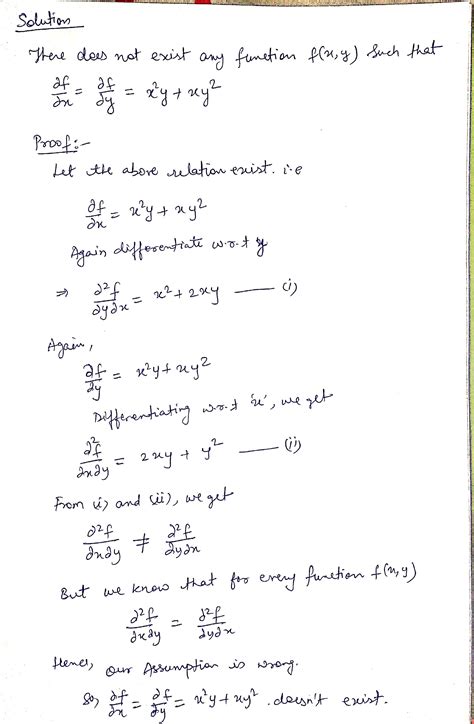 Solution
There does not exist any function f(x,y) such that
∂f/∂x = ∂f/∂y = x²y + xy²
Proof:-
Let the above relation exist. i.e
∂f/∂x = x²y + xy²
Again differentiate w.r.t y
⇒ ∂²f/∂y∂x = x² + 2xy —— (i)
Again,
∂f/∂y = x²y + xy²
Differentiating w.r.t 'x', we get
∂²f/∂x∂y = 2xy + y² —— (ii)
From (i) and (ii), we get
∂²f/∂x∂y ≠ ∂²f/∂y∂x
But we know that for every function f(x,y)
∂²f/∂x∂y = ∂²f/∂y∂x
Hence, our Assumption is wrong.
So, ∂f/∂x = ∂f/∂y = x²y + xy² . doesn't exist.